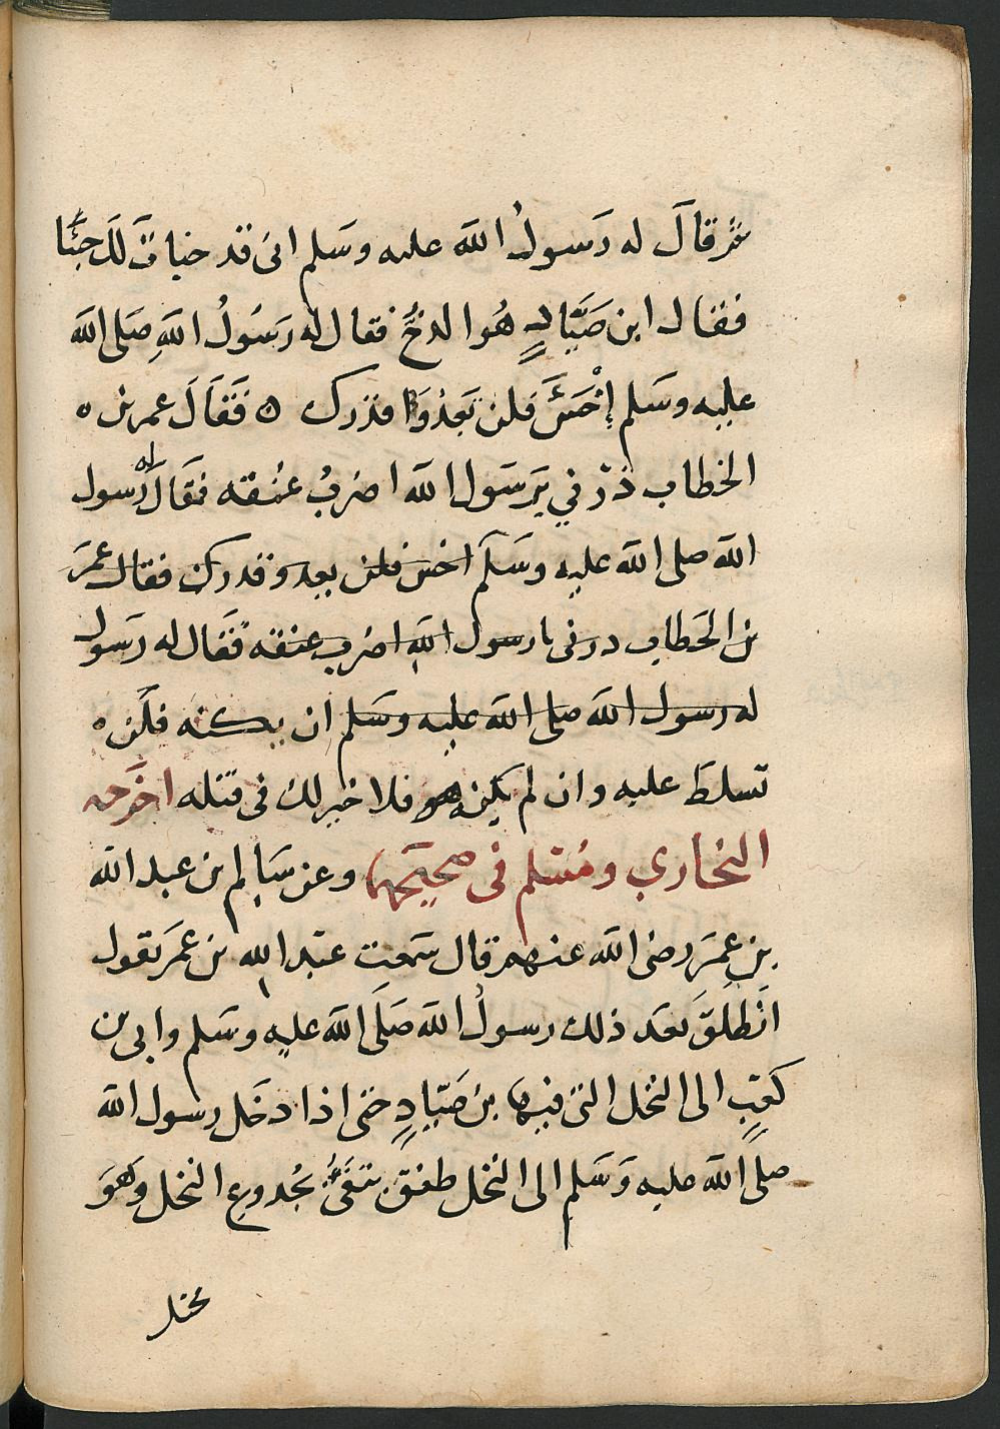 ثم قالَ له رَسولُ الله عليه وسَلم انى قد خبات لك خبئا
فقال ابن صَيَّادٍ هُوا لدخُّ فقال له رَسَولُ اللهِ صَلى الله
عليه وسَلم إخْسَئَ فلن تَعدُوَا قدرك ٥ فَقَالَ عمر بن ٥
الخطاب ذرْني يَرسَول الله اضربُ عنُقه فقَال له رَسول
الله صلى الله عليه وسَلم اخس فلن يعدو قدرك فقال عمَر
بن الخَطاب درنى يا رسول الله اضرب عنقه فقَال له رسَول
له رسول الله صلى الله عليه وسَلم ان يكنه فلَن ٥
تسلطَ عليه وان لم يكن هو فلا خير لك فى قتله اخرَجه
البخاري ومُسلم فى صحيحَهما وعن سَالم بن عبد الله
بن عِمَر رضى الله عنهم قال سَمعت عبَد الله بن عمَر يقول
انَطلقَ بَعد ذلك رسولُ الله صَلَى الله عليه وسَلم وابى بن
كَعبٍ الى النخل التى فيها بن صَيّادٍ حتى اذا دخَل رسول الله
صلى الله عليه وَسَلم الى النخل طفق يتقىُ بجُدوع النخل وَهوَ
يختل